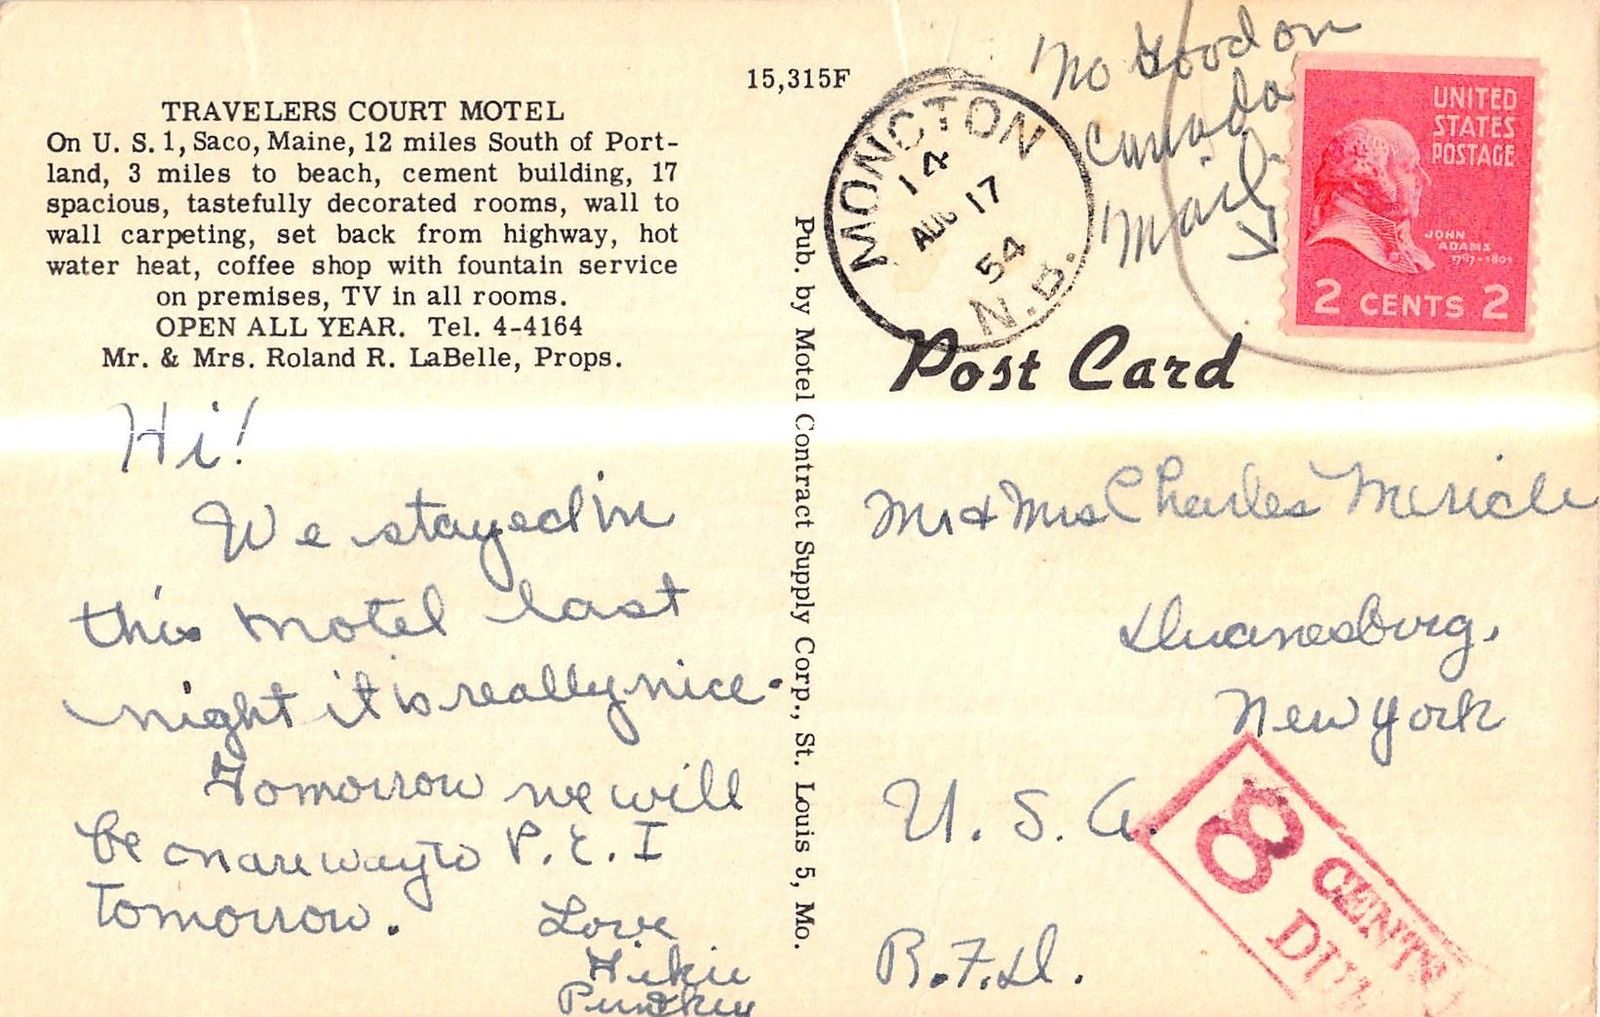 TRAVELERS COURT MOTEL
On U. S. 1, Saco, Maine, 12 miles South of Port-
land, 3 miles to beach, cement building, 17
spacious, tastefully decorated rooms, wall to
wall carpeting, set back from highway, hot
water heat, coffee shop with fountain service
on premises, TV in all rooms.
OPEN ALL YEAR. Tel. 4-4164
Mr. & Mrs. Roland R. LaBelle, Props.
Hi!
We stayed in
this motel last
night it is really nice.
Tomorrow we will
be on are way to P.E.I
Tomorrow.
Love
15,315F
Pub. by Motel Contract Supply Corp., St. Louis 5, Mo.
MONCTON
14
AUG 17
54
N.B.
No Good on
Canada
Mail.
UNITED
STATES
POSTAGE
JOHN
ADAMS
1797-1801
2 CENTS 2
Post Card
Mr & Mrs Charles Mericle
Duanesburg,
New York
U. S. A.
R.F.D.
8 CENTS
DUE